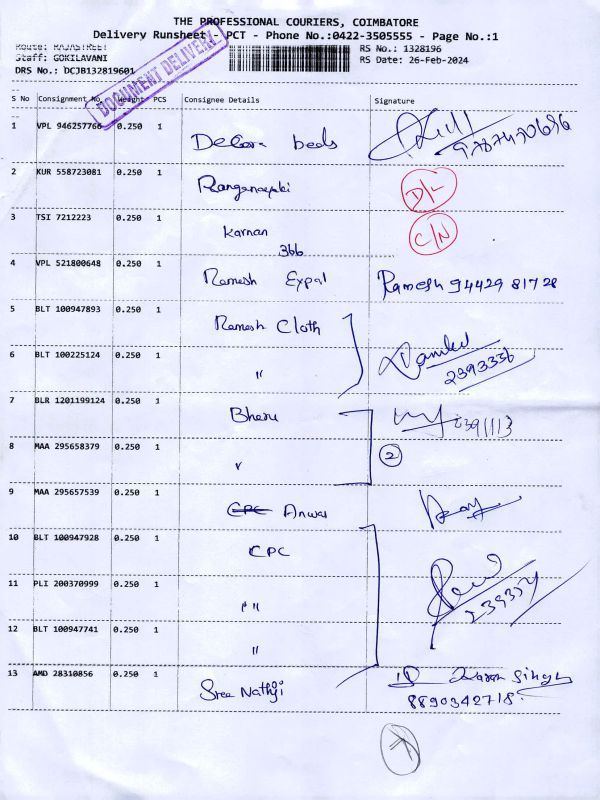 THE PROFESSIONAL COURIERS, COIMBATORE
Delivery Runsheet - PCT - Phone No.:0422-3505555 - Page No.:1
Route: RAJASTREET
Staff: GOKILAVANI
DRS No.: DCJB132819601
RS No.: 1328196
RS Date: 26-Feb-2024
DOCUMENT DELIVERY
S No Consignment No. Weight PCS Consignee Details Signature
1 VPL 946257766 0.250 1 Decora beds
2 KUR 558723081 0.250 1 D/L
3 TSI 7212223 0.250 1 Karnan C/N
366
4 VPL 521800648 0.250 1 Ramesh Expal Ramesh 94429 81728
5 BLT 100947893 0.250 1 Ramesh Cloth
6 BLT 100225124 0.250 1 "
2393336
7 BLR 1201199124 0.250 1 Bheru 2391113
8 MAA 295658379 0.250 1 " 2
9 MAA 295657539 0.250 1 CPC Anwar
10 BLT 100947928 0.250 1 CPC
11 PLI 200370999 0.250 1 "
12 BLT 100947741 0.250 1 "
13 AMD 28310856 0.250 1 Sree Nathji Singh
8890342718